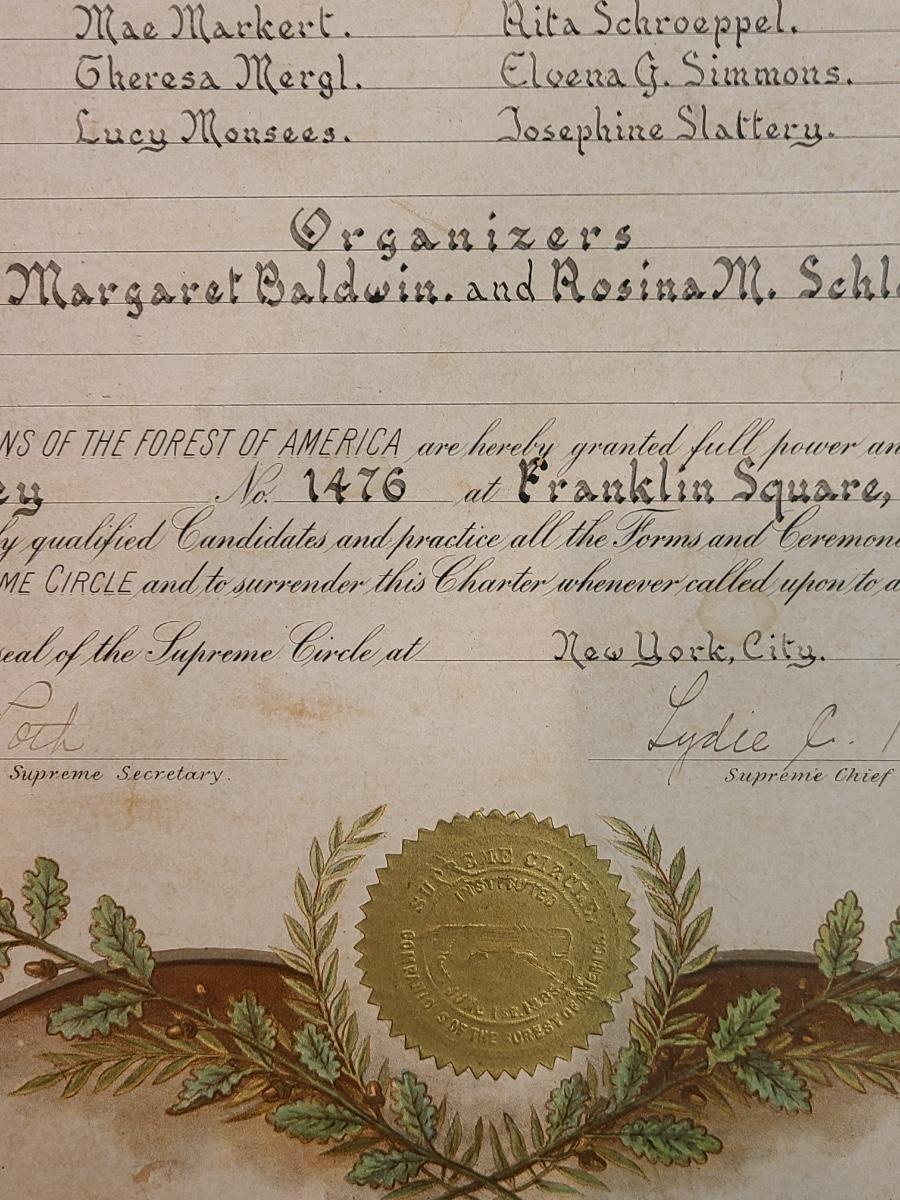 Mae Markert. Rita Schroeppel.
Theresa Mergl. Elvena G. Simmons.
Lucy Monsees. Josephine Slattery.
Organizers
Margaret Baldwin. and Rosina M. Schl
NS OF THE FOREST OF AMERICA are hereby granted full power an
ey No. 1476 at Franklin Square,
ly qualified Candidates and practice all the Forms and Ceremoni
ME CIRCLE and to surrender this Charter whenever called upon to
seal of the Supreme Circle at New York, City.
Lydie C.
Supreme Secretary. Supreme Chief
SUPREME CIRCLE
INSTITUTED
JUNE 1ST
S OF THE FOREST OF AMERICA